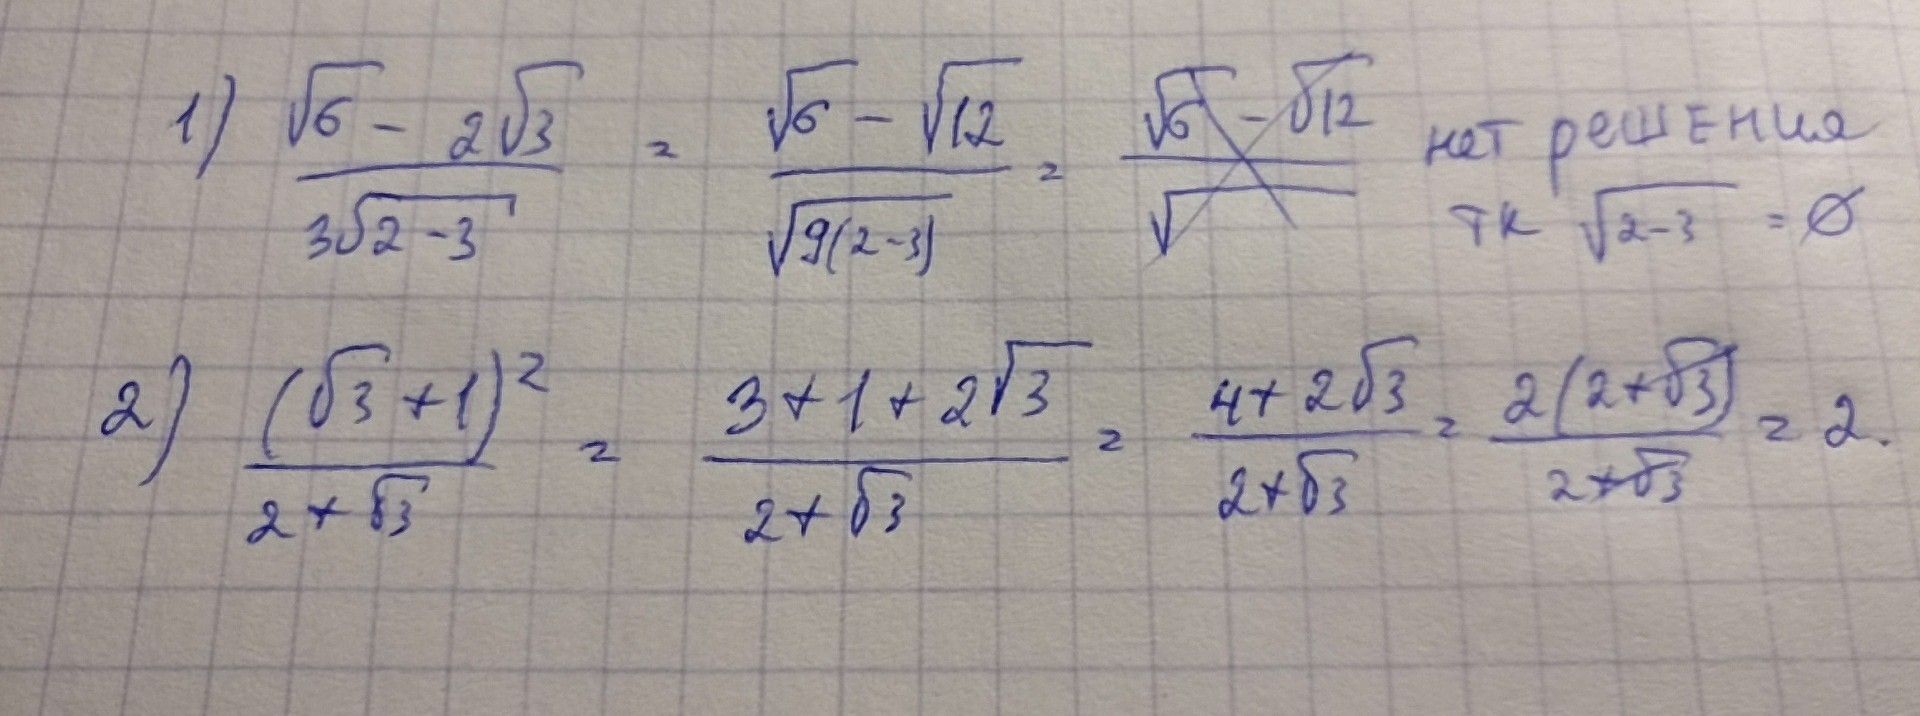 1) (√6 - 2√3)/(3√(2-3)) = (√6 - √12)/(√(9(2-3))) = (√6 - √12)/√ нет решения
тк √(2-3) = ∅
2) (√3 + 1)²/(2+√3) = (3+1+2√3)/(2+√3) = (4+2√3)/(2+√3) = 2(2+√3)/(2+√3) = 2.